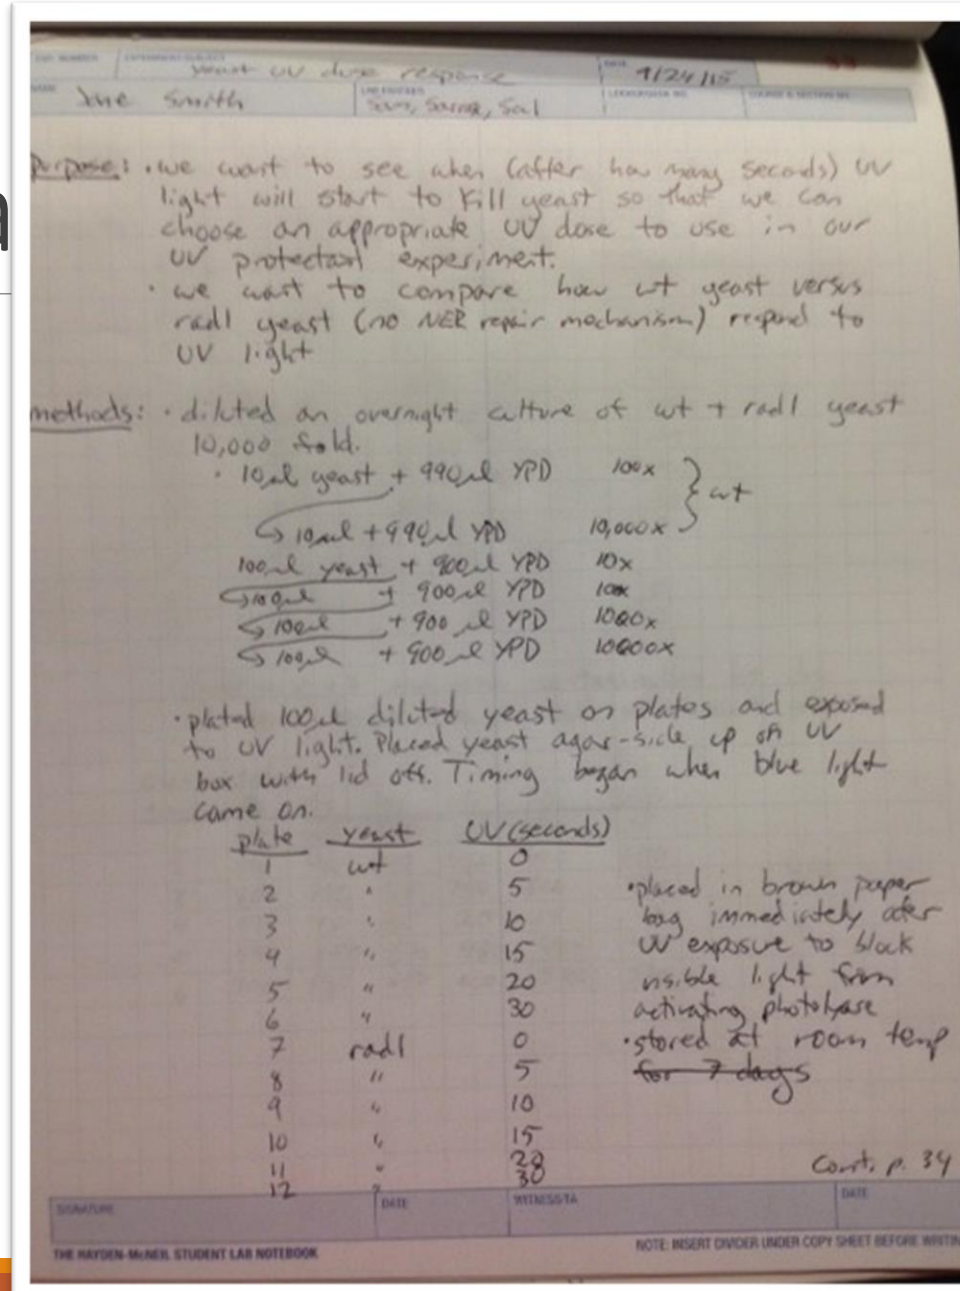 a
EXP. NUMBER EXPERIMENT/SUBJECT DATE 33
yeast UV dose response 9/24/15
NAME LAB PARTNERS LOCKER/DESK NO. COURSE & SECTION NO.
Jane Smith Sal
Purpose: · we want to see when (after how many seconds) UV
light will start to kill yeast so that we can
choose an appropriate UV dose to use in our
UV protectant experiment.
· we want to compare how wt yeast versus
rad1 yeast (no NER repair mechanism) respond to
UV light
methods: · diluted an overnight culture of wt + rad1 yeast
10,000 fold.
· 10µl yeast + 990µl YPD 100x
wt
10µl + 990µl YPD 10,000x
100µl yeast + 900µl YPD 10x
100µl + 900µl YPD 100x
100µl + 900µl YPD 1000x
100µl + 900µl YPD 10000x
· plated 100µl diluted yeast on plates and exposed
to UV light. Placed yeast agar-side up on UV
box with lid off. Timing began when blue light
came on.
plate yeast UV (seconds)
1 wt 0
2 " 5
3 " 10
4 " 15
5 " 20
6 " 30
7 rad1 0
8 " 5
9 " 10
10 " 15
11 " 20
12 " 30
· placed in brown paper
bag immediately after
UV exposure to block
visible light from
activating photolyase
· stored at room temp
for 7 days
Cont. p. 34
SIGNATURE DATE WITNESS/TA DATE
THE HAYDEN-McNEIL STUDENT LAB NOTEBOOK NOTE: INSERT DIVIDER UNDER COPY SHEET BEFORE